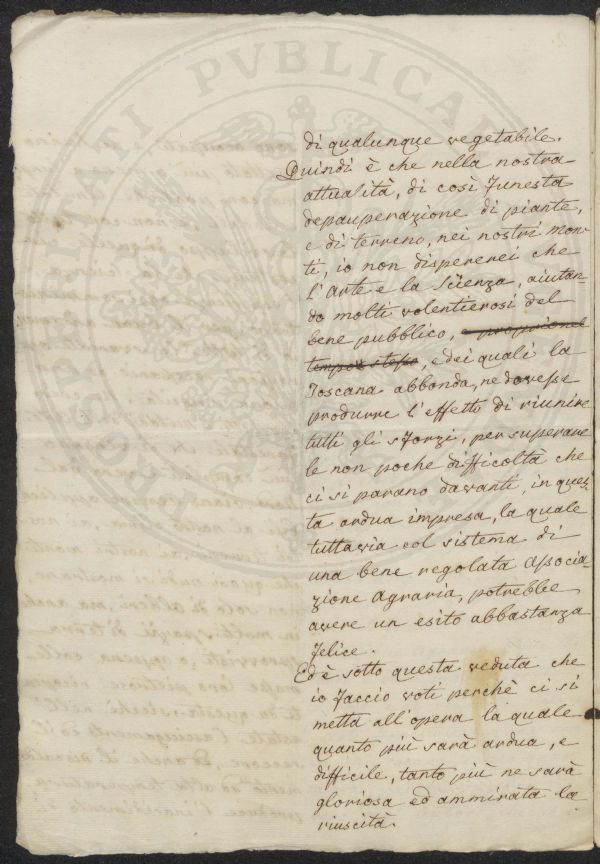 di qualunque vegetabile.
Quindi è che nella nostra
attualità, di così funesta
depauperazione di piante,
e di terreno, nei nostri mon-
ti, io non dispererei che
l'Arte e la Scienza, aiutan-
do molti volentierosi del
bene pubblico, e proprional
tempo stesso, e dei quali la
Toscana abbonda, ne dovesse
produrre l'effetto di riunire
tutti gli sforzi, per superare
le non poche difficoltà che
ci si parano davanti, in ques-
ta ardua impresa, la quale
tuttavia col sistema di
una bene regolata associa-
zione agraria, potrebbe
avere un esito abbastanza
felice.
Ed è sotto questa veduta che
io faccio voti perchè ci si
metta all'opera la quale
quanto più sarà ardua, e
difficile, tanto più ne sarà
gloriosa ed ammirata la
riuscita.